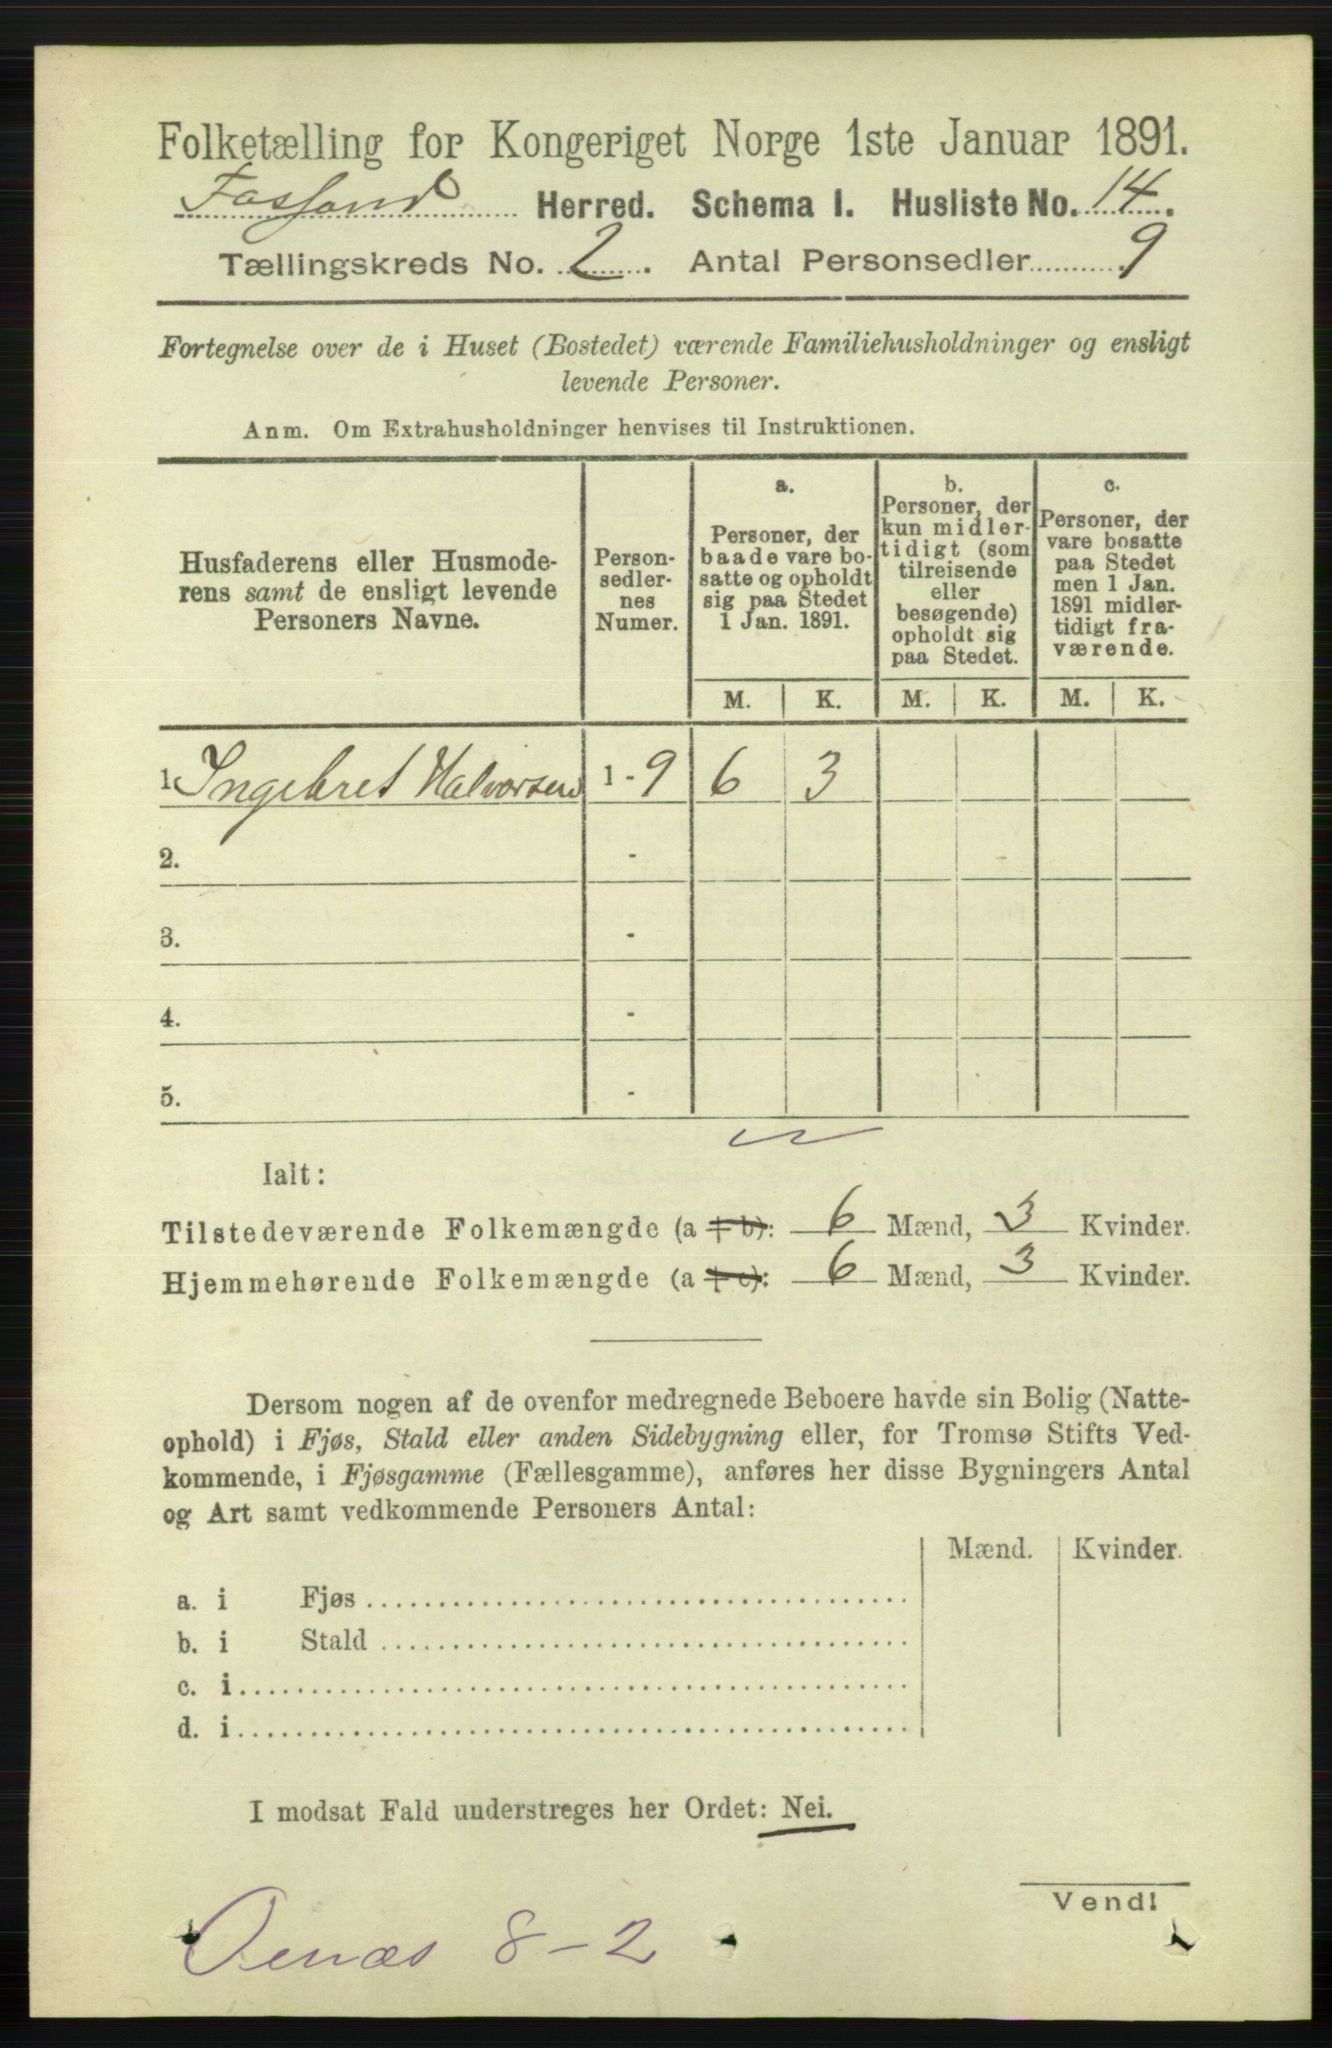 Folketælling for Kongeriget Norge 1ste Januar 1891.
Fossand Herred. Schema 1. Husliste No. 14.
Tællingskreds No. 2. Antal Personsedler 9
Fortegnelse over de i Huset (Bostedet) værende Familiehusholdninger og ensligt
levende Personer.
Anm. Om Extrahusholdninger henvises til Instruktionen.
Husfaderens eller Husmode-
rens samt de ensligt levende
Personers Navne.
Person-
sedler-
nes
Numer.
a.
Personer, der
baade vare bo-
satte og opholdt
sig paa Stedet
1 Jan. 1891.
b.
Personer, der
kun midler-
tidigt (som
tilreisende
eller
besøgende)
opholdt sig
paa Stedet.
c.
Personer, der
vare bosatte
paa Stedet
men 1 Jan.
1891 midler-
tidigt fra-
værende.
M. K. M. K. M. K.
1. Ingebret Halvorsen 1 - 9 6 3
2. -
3. -
4. -
5. -
Ialt:
Tilstedeværende Folkemængde (a + b): 6 Mænd, 3 Kvinder.
Hjemmehørende Folkemængde (a + c): 6 Mænd, 3 Kvinder.
Dersom nogen af de ovenfor medregnede Beboere havde sin Bolig (Natte-
ophold) i Fjøs, Stald eller anden Sidebygning eller, for Tromsø Stifts Ved-
kommende, i Fjøsgamme (Fællesgamme), anføres her disse Bygningers Antal
og Art samt vedkommende Personers Antal:
Mænd. Kvinder.
a. i Fjøs
b. i Stald
c. i
d. i
I modsat Fald understreges her Ordet: Nei.
Vend!
Oenæs 8-2